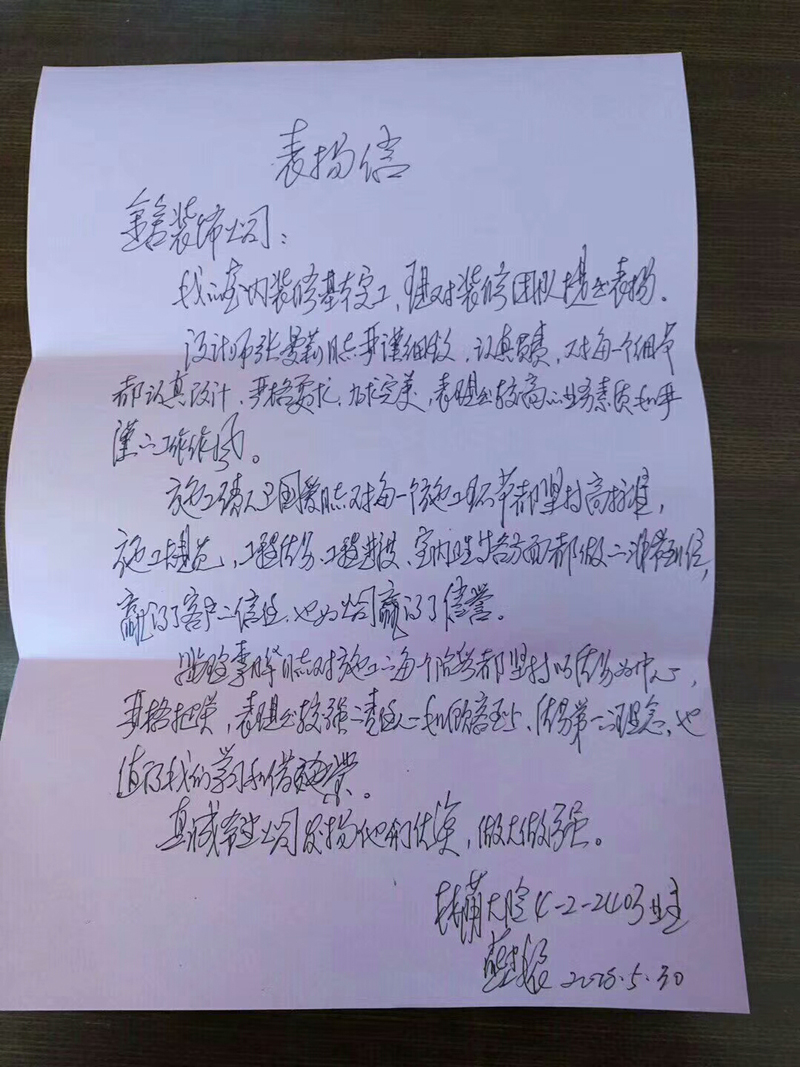 表扬信
装饰公司：
我的室内装修基本完工，现对装修团队提出表扬。
设计师张曼莉同志严谨细致，认真负责，对每一个细节
都认真设计，严格要求，力求完美，表现出较高的业务素质和严
谨的工作作风。
施工负责人卫国爱同志对每一个施工环节都坚持高标准，
施工规范，工程质量、工程进度、室内卫生等各方面都做的非常到位，
赢得了客户的信任，也为公司赢得了信誉。
监理李辉同志对施工的每个阶段都坚持以质量为中心，
严格把关，表现出较强的责任心和顾客至上、质量第一的理念，也
值得我们学习和借鉴。
真诚希望公司发扬他们优演，做大做强。
4-2-2403业主
5.30